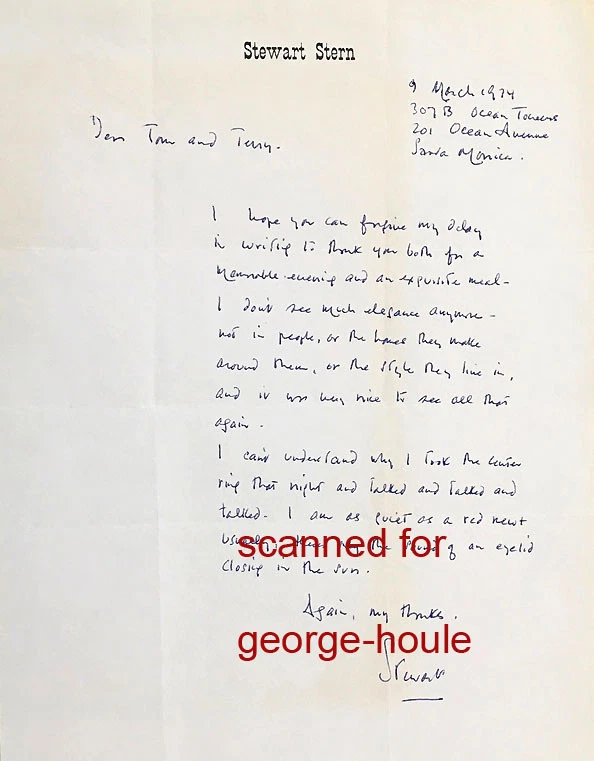 Stewart Stern
9 March 1974
307B Ocean Towers
201 Ocean Avenue
Santa Monica.
Dear Tom and Terry.
I hope you can forgive my delay
in writing to thank you both for a
memorable evening and an exquisite meal-
I don't see much elegance anymore -
not in people, or the homes they make
around them, or the style they live in,
and it was very nice to see all that
again.
I can't understand why I took the center
ring that night and talked and talked and
talked. I am as quiet as a red newt
usually, the of an eyelid
scanned for
closing in the sun.
Again, my thanks.
george-houle
Stewart